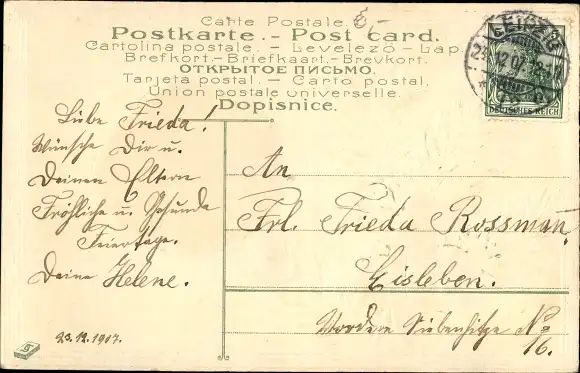 Carte Postale.
Postkarte. - Post card.
Cartolina postale. - Levelező-Lap.
Brefkort.-Briefkaart.-Brevkort.
ОТКРЫТОЕ ПИСЬМО.
Tarjeta postal. - Carto postal.
Union postale universelle.
Dopisnice.
LEIPZIG
DEUTSCHES REICH
Liebe Frieda!
Wünsche Dir u.
Deinen Eltern
Fröhliche u. Gesunde
Feiertage.
Deine Helene.
23.12.1907.
An
Frl. Frieda Rossman,
Eisleben.
Vordere Siebenhitze No
16.